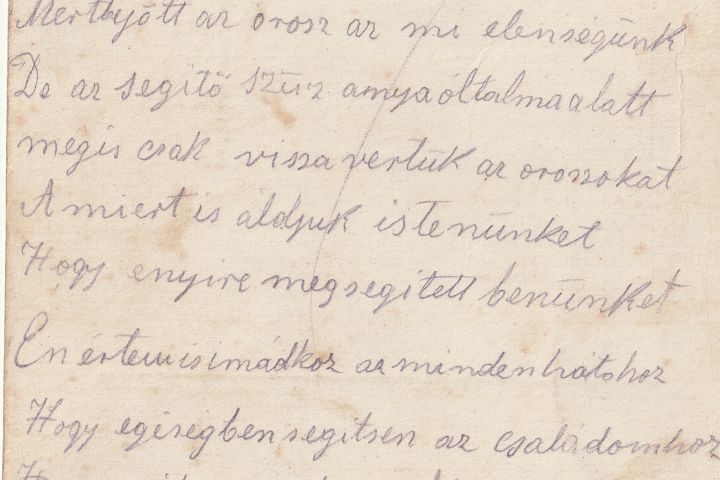 Mertbejött az orosz az mi elenségünk
De az segitö szüz anyaóltalmaalatt
megis csak vissza vertük az oroszokat
A miert is áldjuk istenünket
Hogy enyire megsegitett benünket
En értemisimádkoz azmindenhatohoz
Hogy egeségben segitsen az családomhoz